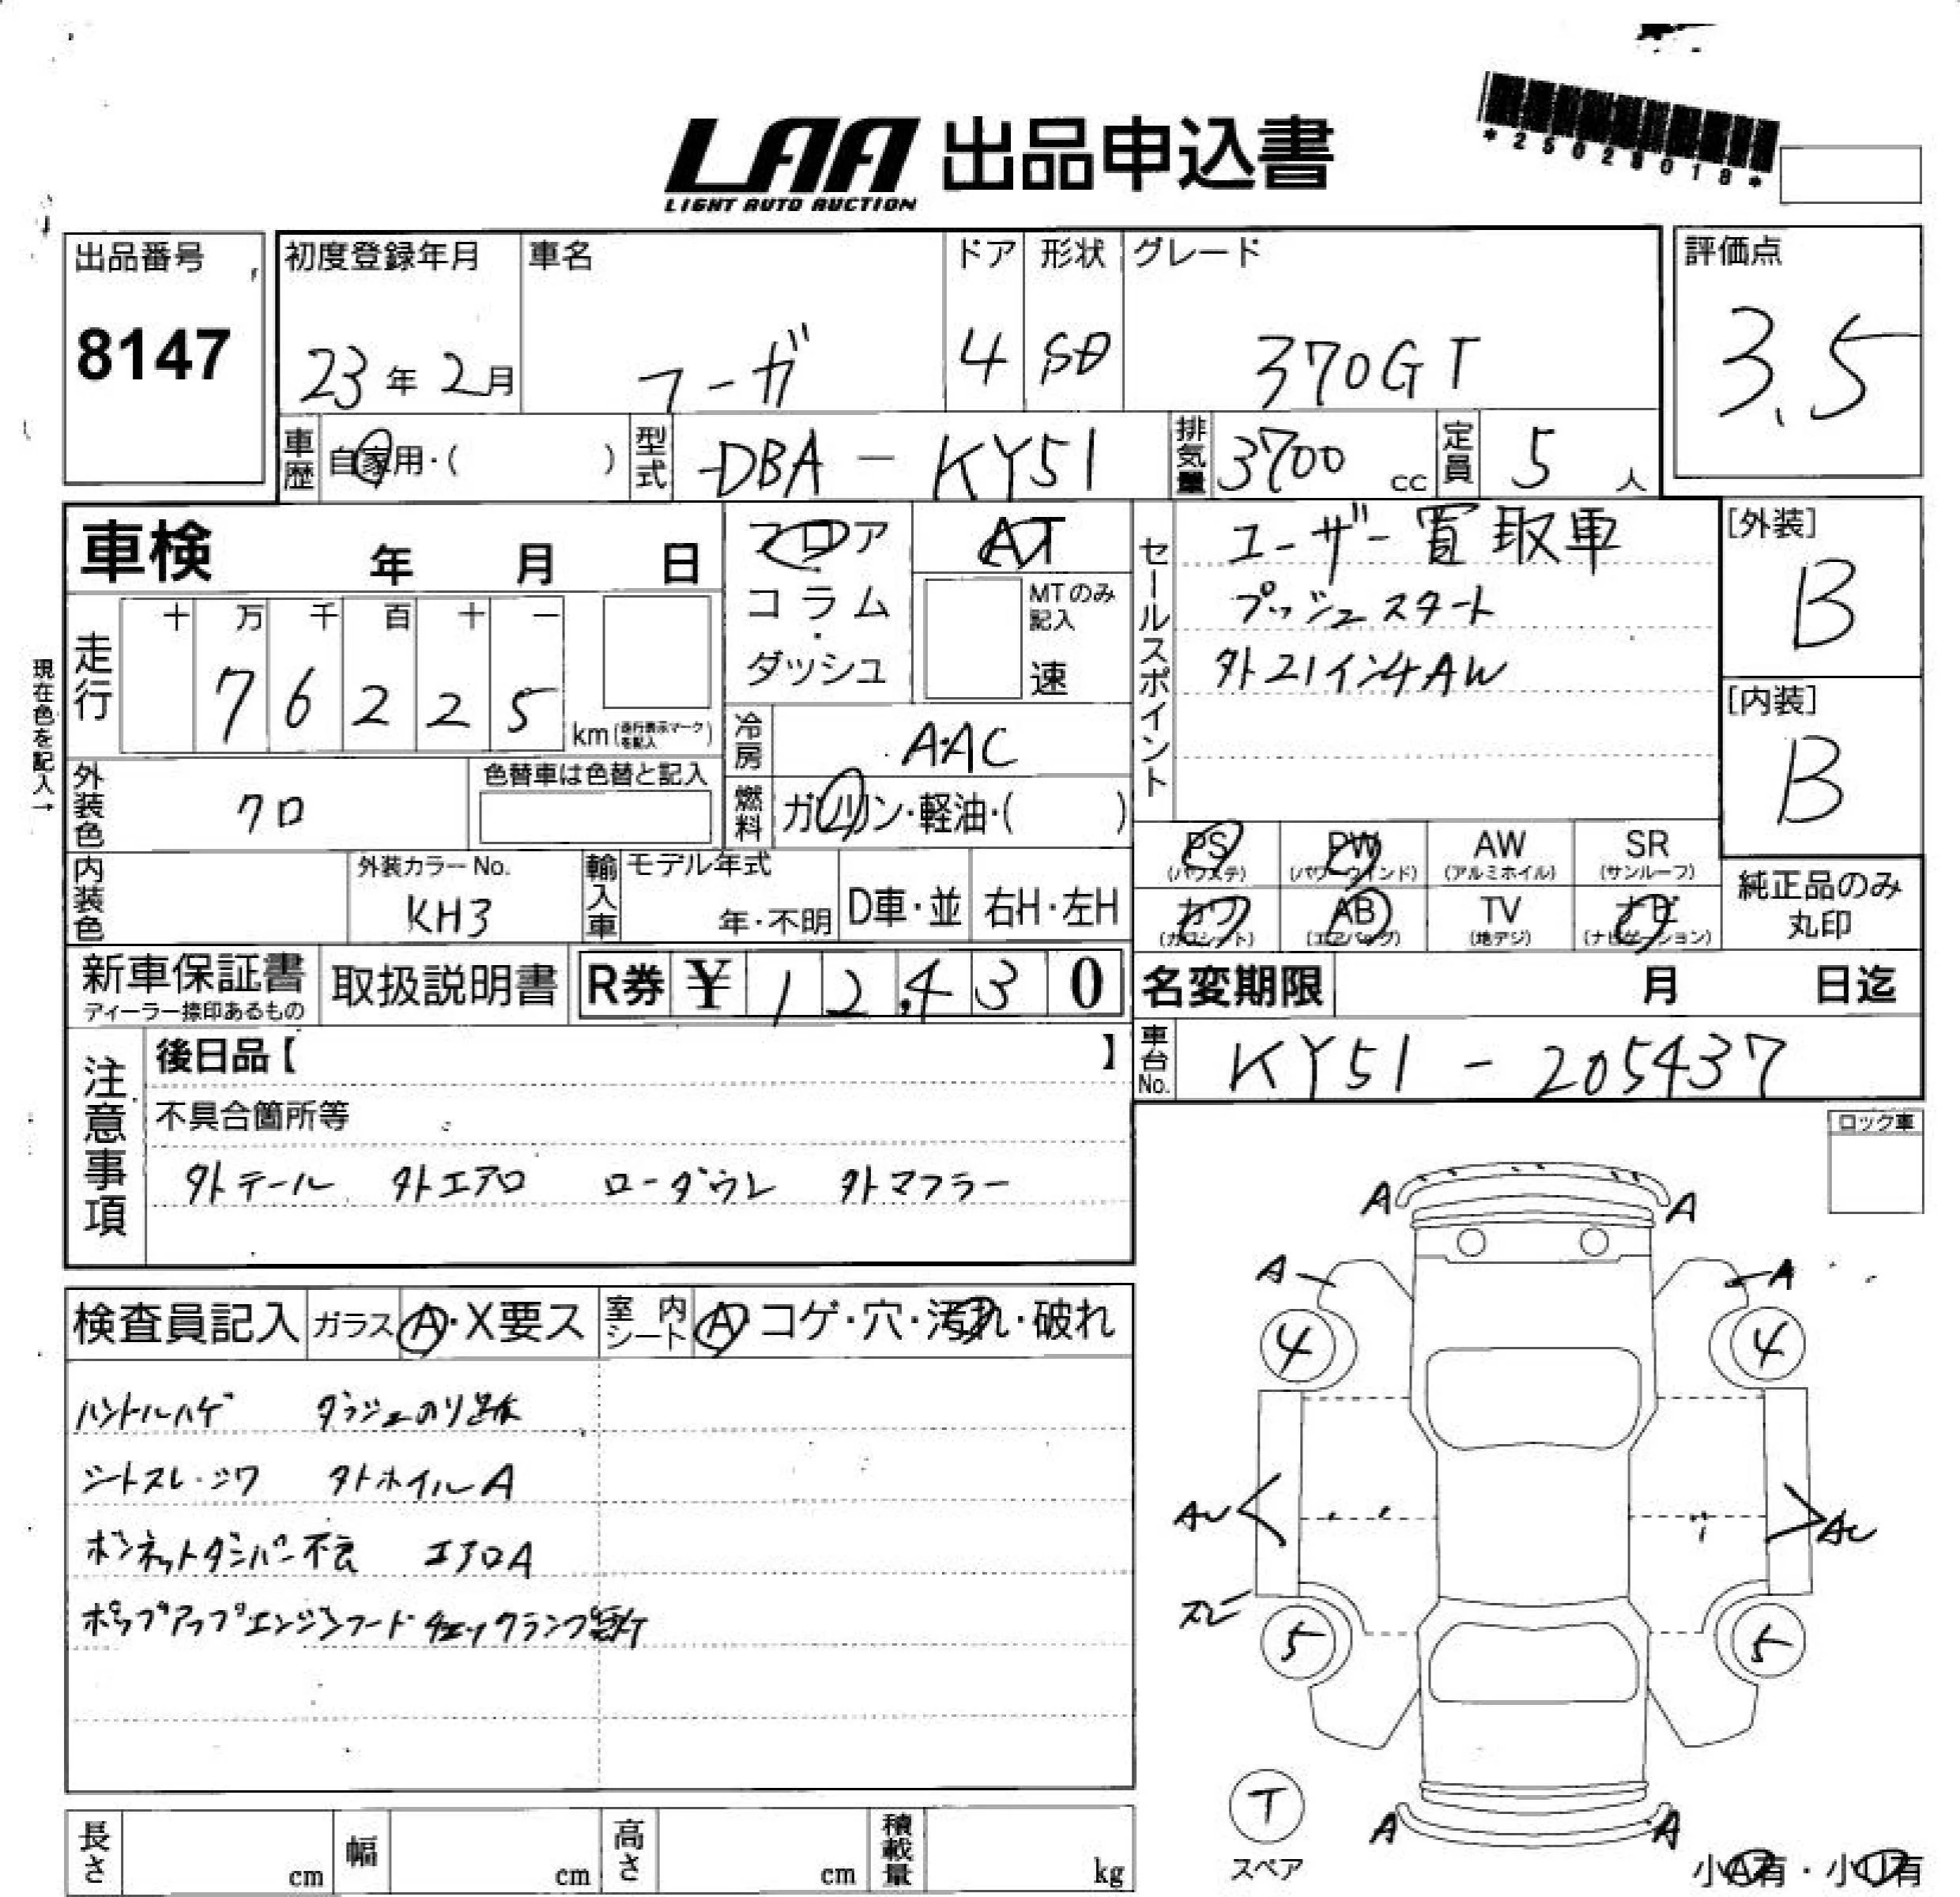 LAA 出品申込書
LIGHT AUTO AUCTION
*25028018*
出品番号
8147
初度登録年月
23年2月
車名
フーガ
ドア
4
形状
SD
グレード
370GT
評価点
3.5
車歴
自家用・( )
型式
DBA-KY51
排気量
3700cc
定員
5人
車検 年 月 日
フロア
コラム
・
ダッシュ
AT
MTのみ
記入
速
セールスポイント
ユーザー買取車
プッシュスタート
外21インチAW
[外装]
B
[内装]
B
現在色を記入→
走行
十 万 千 百 十 一
7 6 2 2 5
km(走行表示マークを記入)
冷房
AAC
燃料
ガソリン・軽油・( )
外装色
クロ
色替車は色替と記入
内装色
外装カラーNo.
KH3
輸入車
モデル年式
年・不明
D車・並
右H・左H
PS
(パワステ)
PW
(パワーウインド)
AW
(アルミホイル)
SR
(サンルーフ)
カワ
(カワシート)
AB
(エアバッグ)
TV
(地デジ)
ナビ
(ナビゲーション)
純正品のみ
丸印
新車保証書
ディーラー捺印あるもの
取扱説明書
R券 ¥ 12,430
名変期限 月 日迄
車台No.
KY51-205437
注意事項
後日品【 】
不具合箇所等
外テール 外エアロ ローダウン 外マフラー
ロック車
検査員記入 ガラス A・X要ス 室内シート A コゲ・穴・汚れ・破れ
ハンドルハゲ ダッシュのり跡
シートスレ・シワ 外ホイルA
ボンネットダンパー不良 エアロA
ポップアップエンジンフードチェックランプ点灯
A A
A A
4 4
AU AU
スレ
5 5
T
スペア
A A
小A有・小U有
長さ cm 幅 cm 高さ cm 積載量 kg